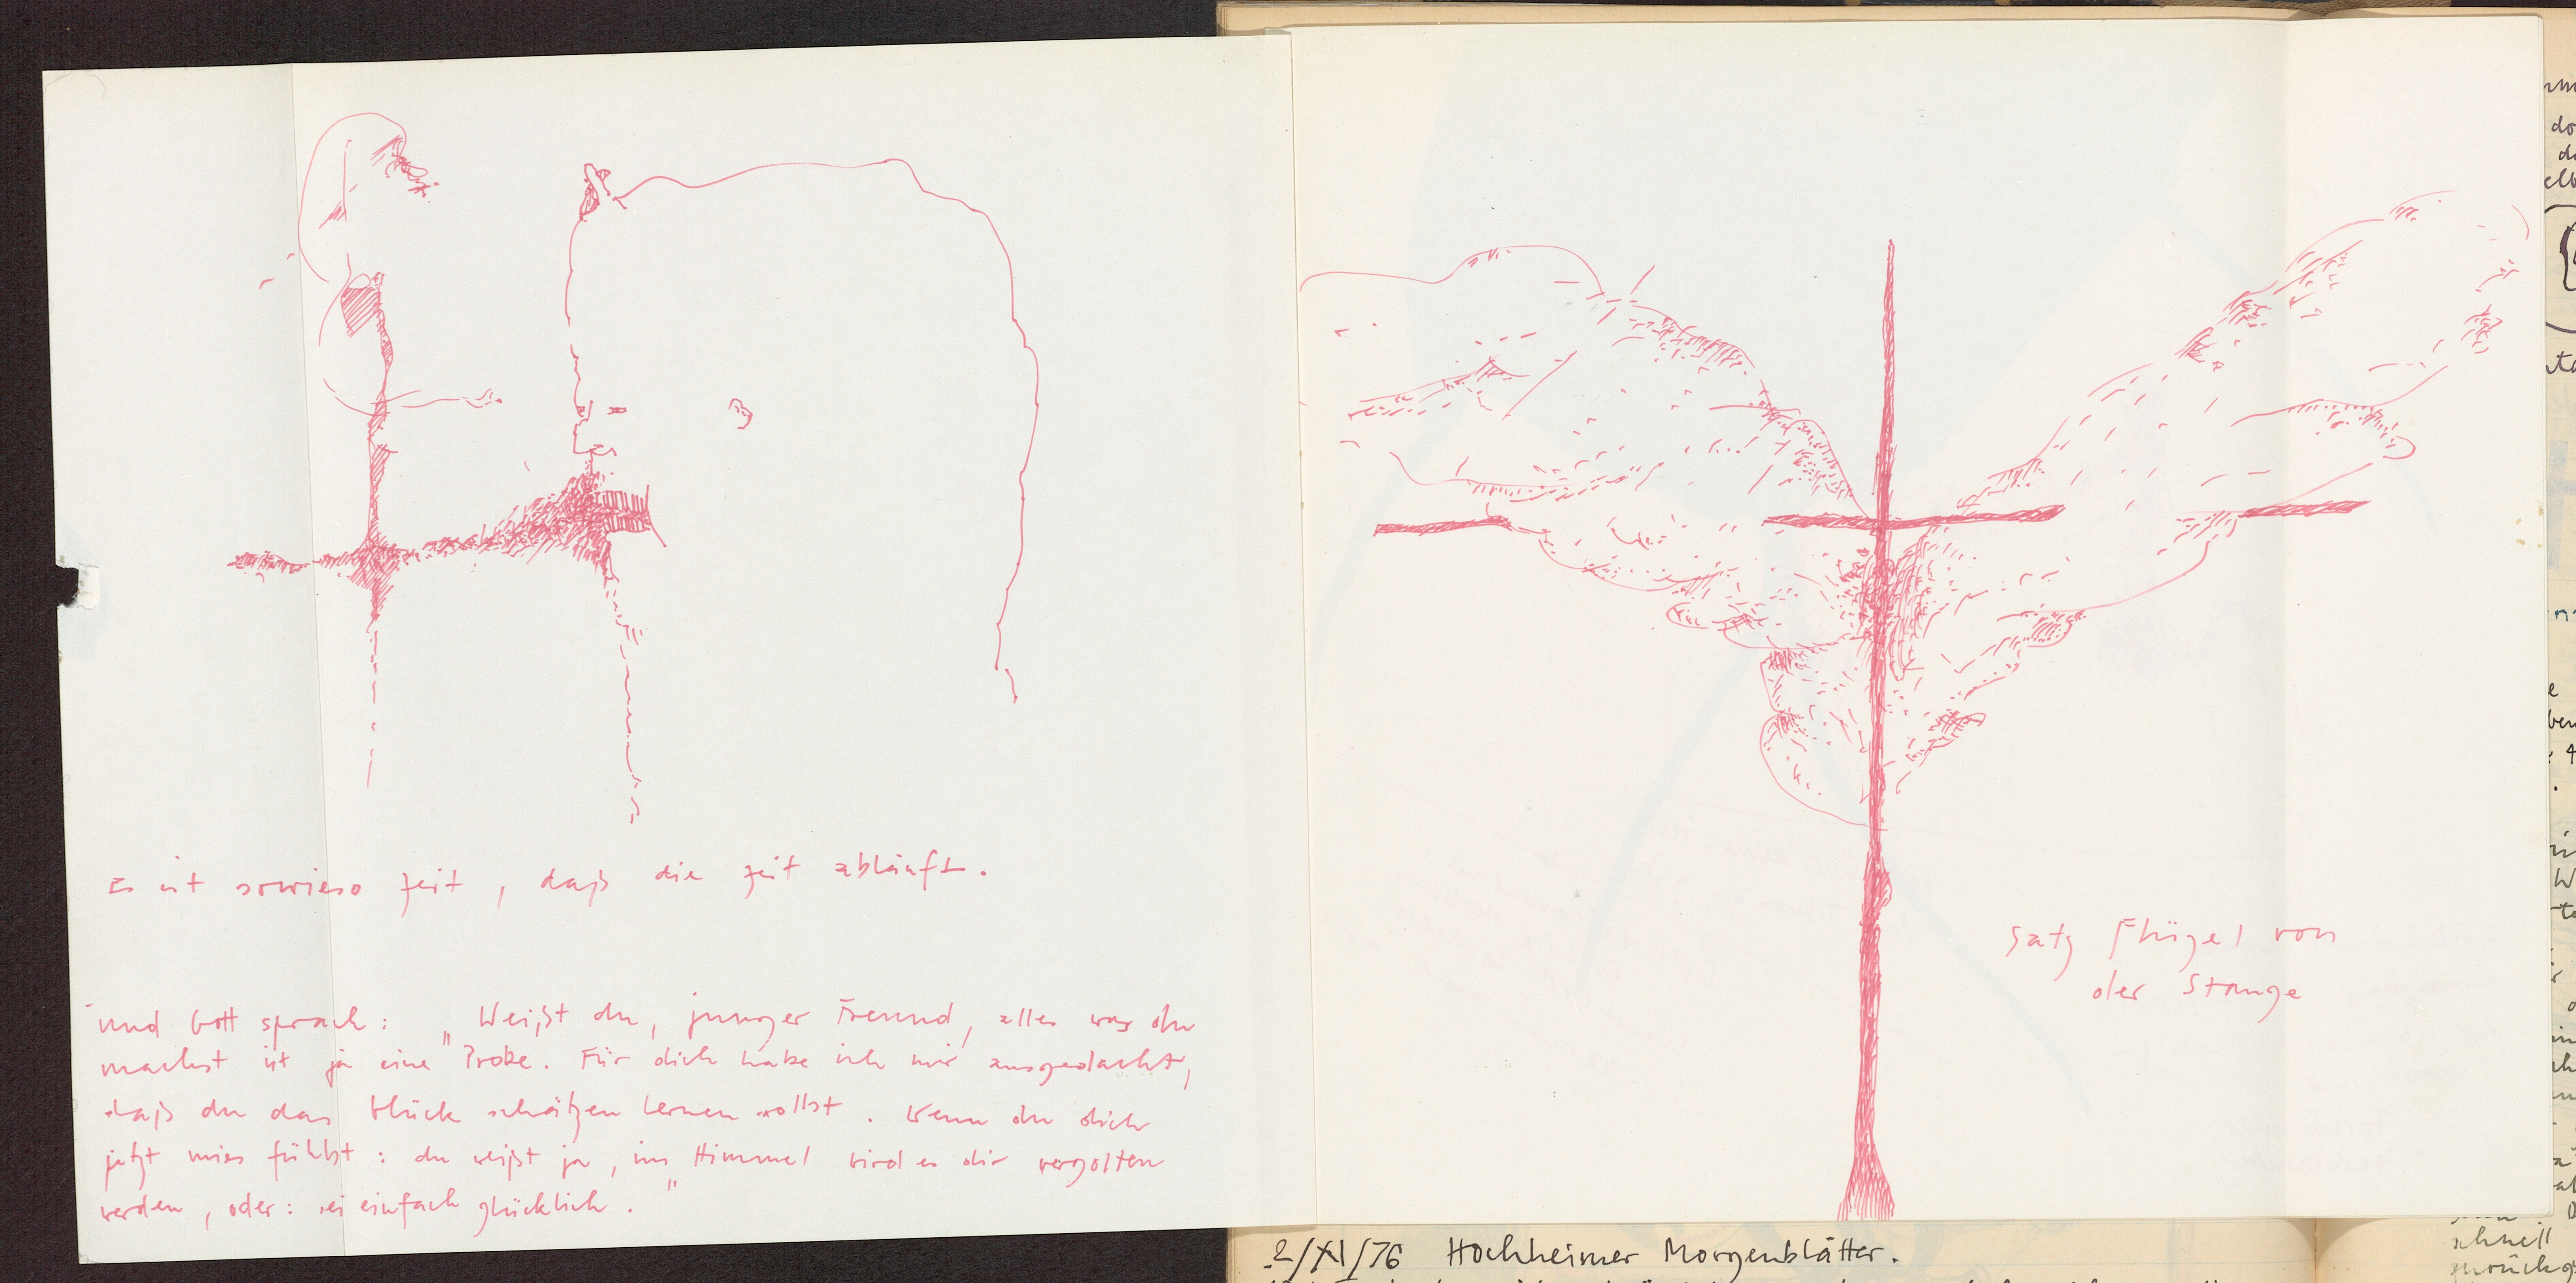 Es ist sowieso Zeit, daß die Zeit abläuft.
Und Gott sprach: „Weißt du, junger Freund, alles was du
machst ist ja eine Probe. Für dich habe ich mir ausgedacht,
daß du das Glück schätzen lernen sollst. Wenn du dich
jetzt mies fühlst: du weißt ja, im Himmel wird es dir vergolten
werden, oder: sei einfach glücklich."
Satz Flügel von
der Stange
2/XI/76 Hochheimer Morgenblätter.
schnell